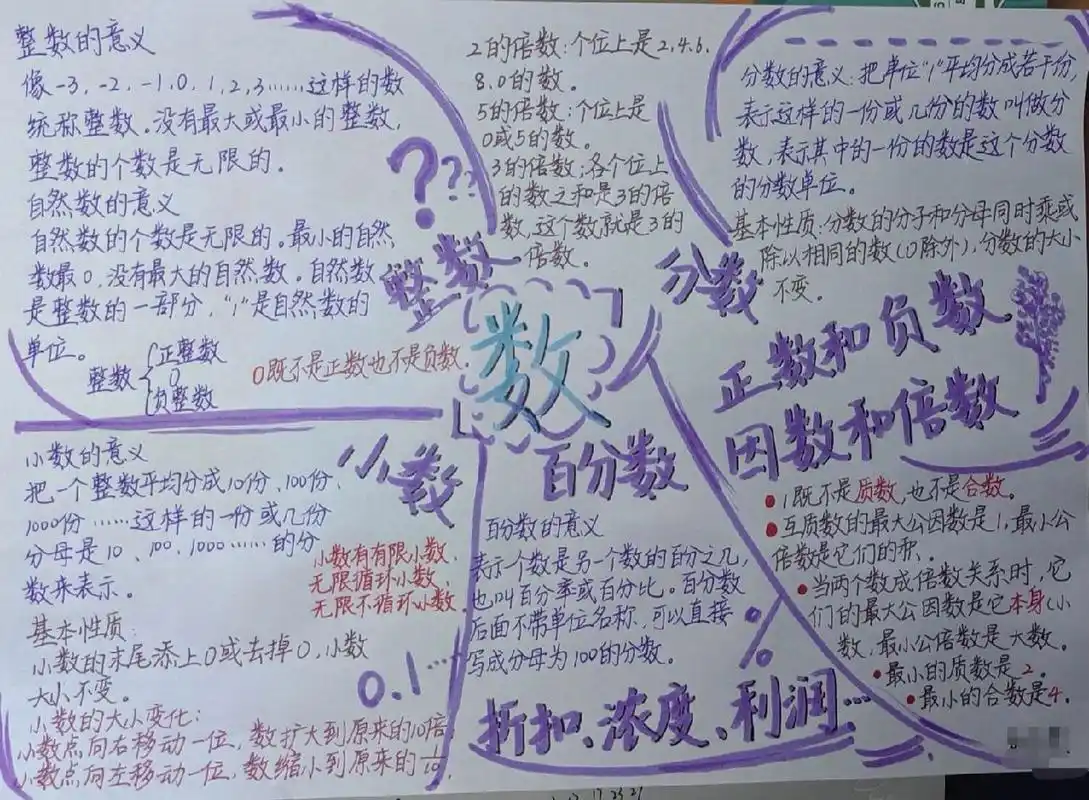 整数的意义
像-3,-2,-1,0,1,2,3……这样的数
统称整数。没有最大或最小的整数,
整数的个数是无限的。
自然数的意义
自然数的个数是无限的。最小的自然
数最0,没有最大的自然数。自然数
是整数的一部分,"1"是自然数的
单位。
整数
正整数
0
负整数
0既不是正数也不是负数.
???
整数
2的倍数:个位上是2.4.6.
8.0的数。
5的倍数:个位上是
0或5的数。
3的倍数:各个位上
的数之和是3的倍
数,这个数就是3的
倍数。
分数的意义:把单位"1"平均分成若干份,
表示这样的一份或几份的数叫做分
数,表示其中的一份的数是这个分数
的分数单位。
基本性质:分数的分子和分母同时乘或
除以相同的数(0除外),分数的大小
不变。
分数
数
正数和负数
因数和倍数
1既不是质数,也不是合数。
互质数的最大公因数是1,最小公
倍数是它们的积、
当两个数成倍数关系时,它
们的最大公因数是它本身(小
数,最小公倍数是大数。
最小的质数是2。
最小的合数是4.
小数
小数的意义
把一个整数平均分成10份、100份、
1000份……这样的一份或几份
分母是10、100、1000……的分
数来表示。
小数有有限小数、
无限循环小数、
无限不循环小数.
基本性质:
小数的末尾添上0或去掉0,小数
大小不变。
0.1…
小数的大小变化:
小数点向右移动一位,数扩大到原来的10倍
小数点向左移动一位,数缩小到原来的1/10.
百分数
百分数的意义
表示个数是另一个数的百分之几,
也叫百分率或百分比。百分数
后面不带单位名称,可以直接
写成分母为100的分数。
%
折扣、浓度、利润…